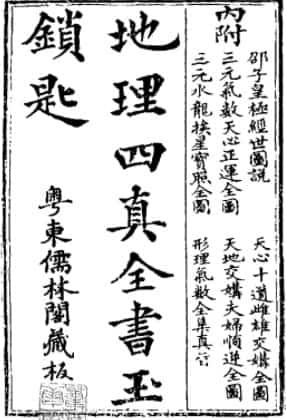 內附
邵子皇極經世圖説
三元氣數天心正運全圖
三元水龍挨星寶照全圖
天心十道雌雄交媾全圖
天地交媾夫婦順逆全圖
形理氣數全集真
地理四真全書玉
鎖匙
粵東儒林閣藏板